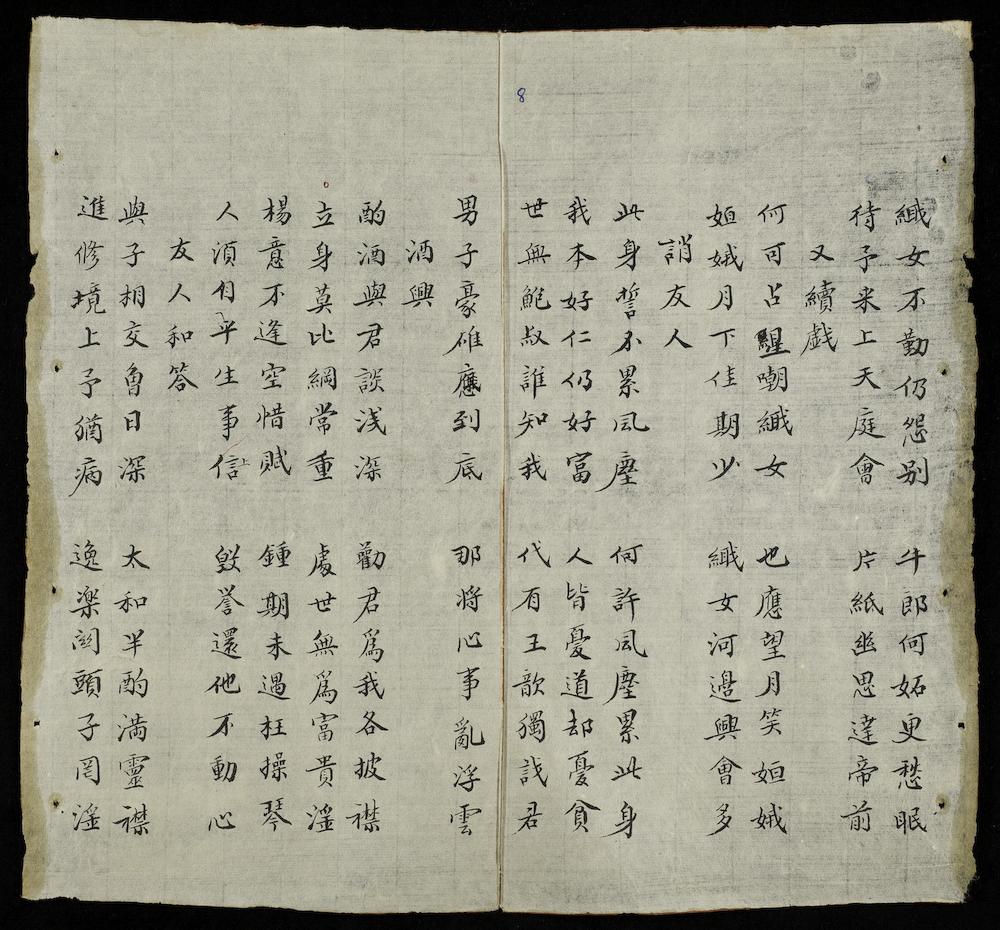 8
織女不勤仍怨别 牛郎何妬更愁眠
待予来上天庭會 片紙幽思達帝前
又續戯
何可占 嘲織女 也應望月笑姮娥
姮娥月下佳期少 織女河邉興會多
誚友人
此身誓不累風塵 何許風塵累此身
我本好仁仍好富 人皆憂道却憂貧
世無鮑叔誰知我 代有王歆獨識君
男子豪雄應到底 那将心事亂浮雲
酒興
酌酒與君談浅深 勸君爲我各披襟
立身莫比綱常重 處世無爲富貴滛
楊意不逢空惜賦 鍾期未遇枉操琴
人須有平生事信 毀誉還他不動心
友人和答
與子相交魯日深 太和半酌滿靈襟
進修境上予猶病 逸楽関頭子罔滛